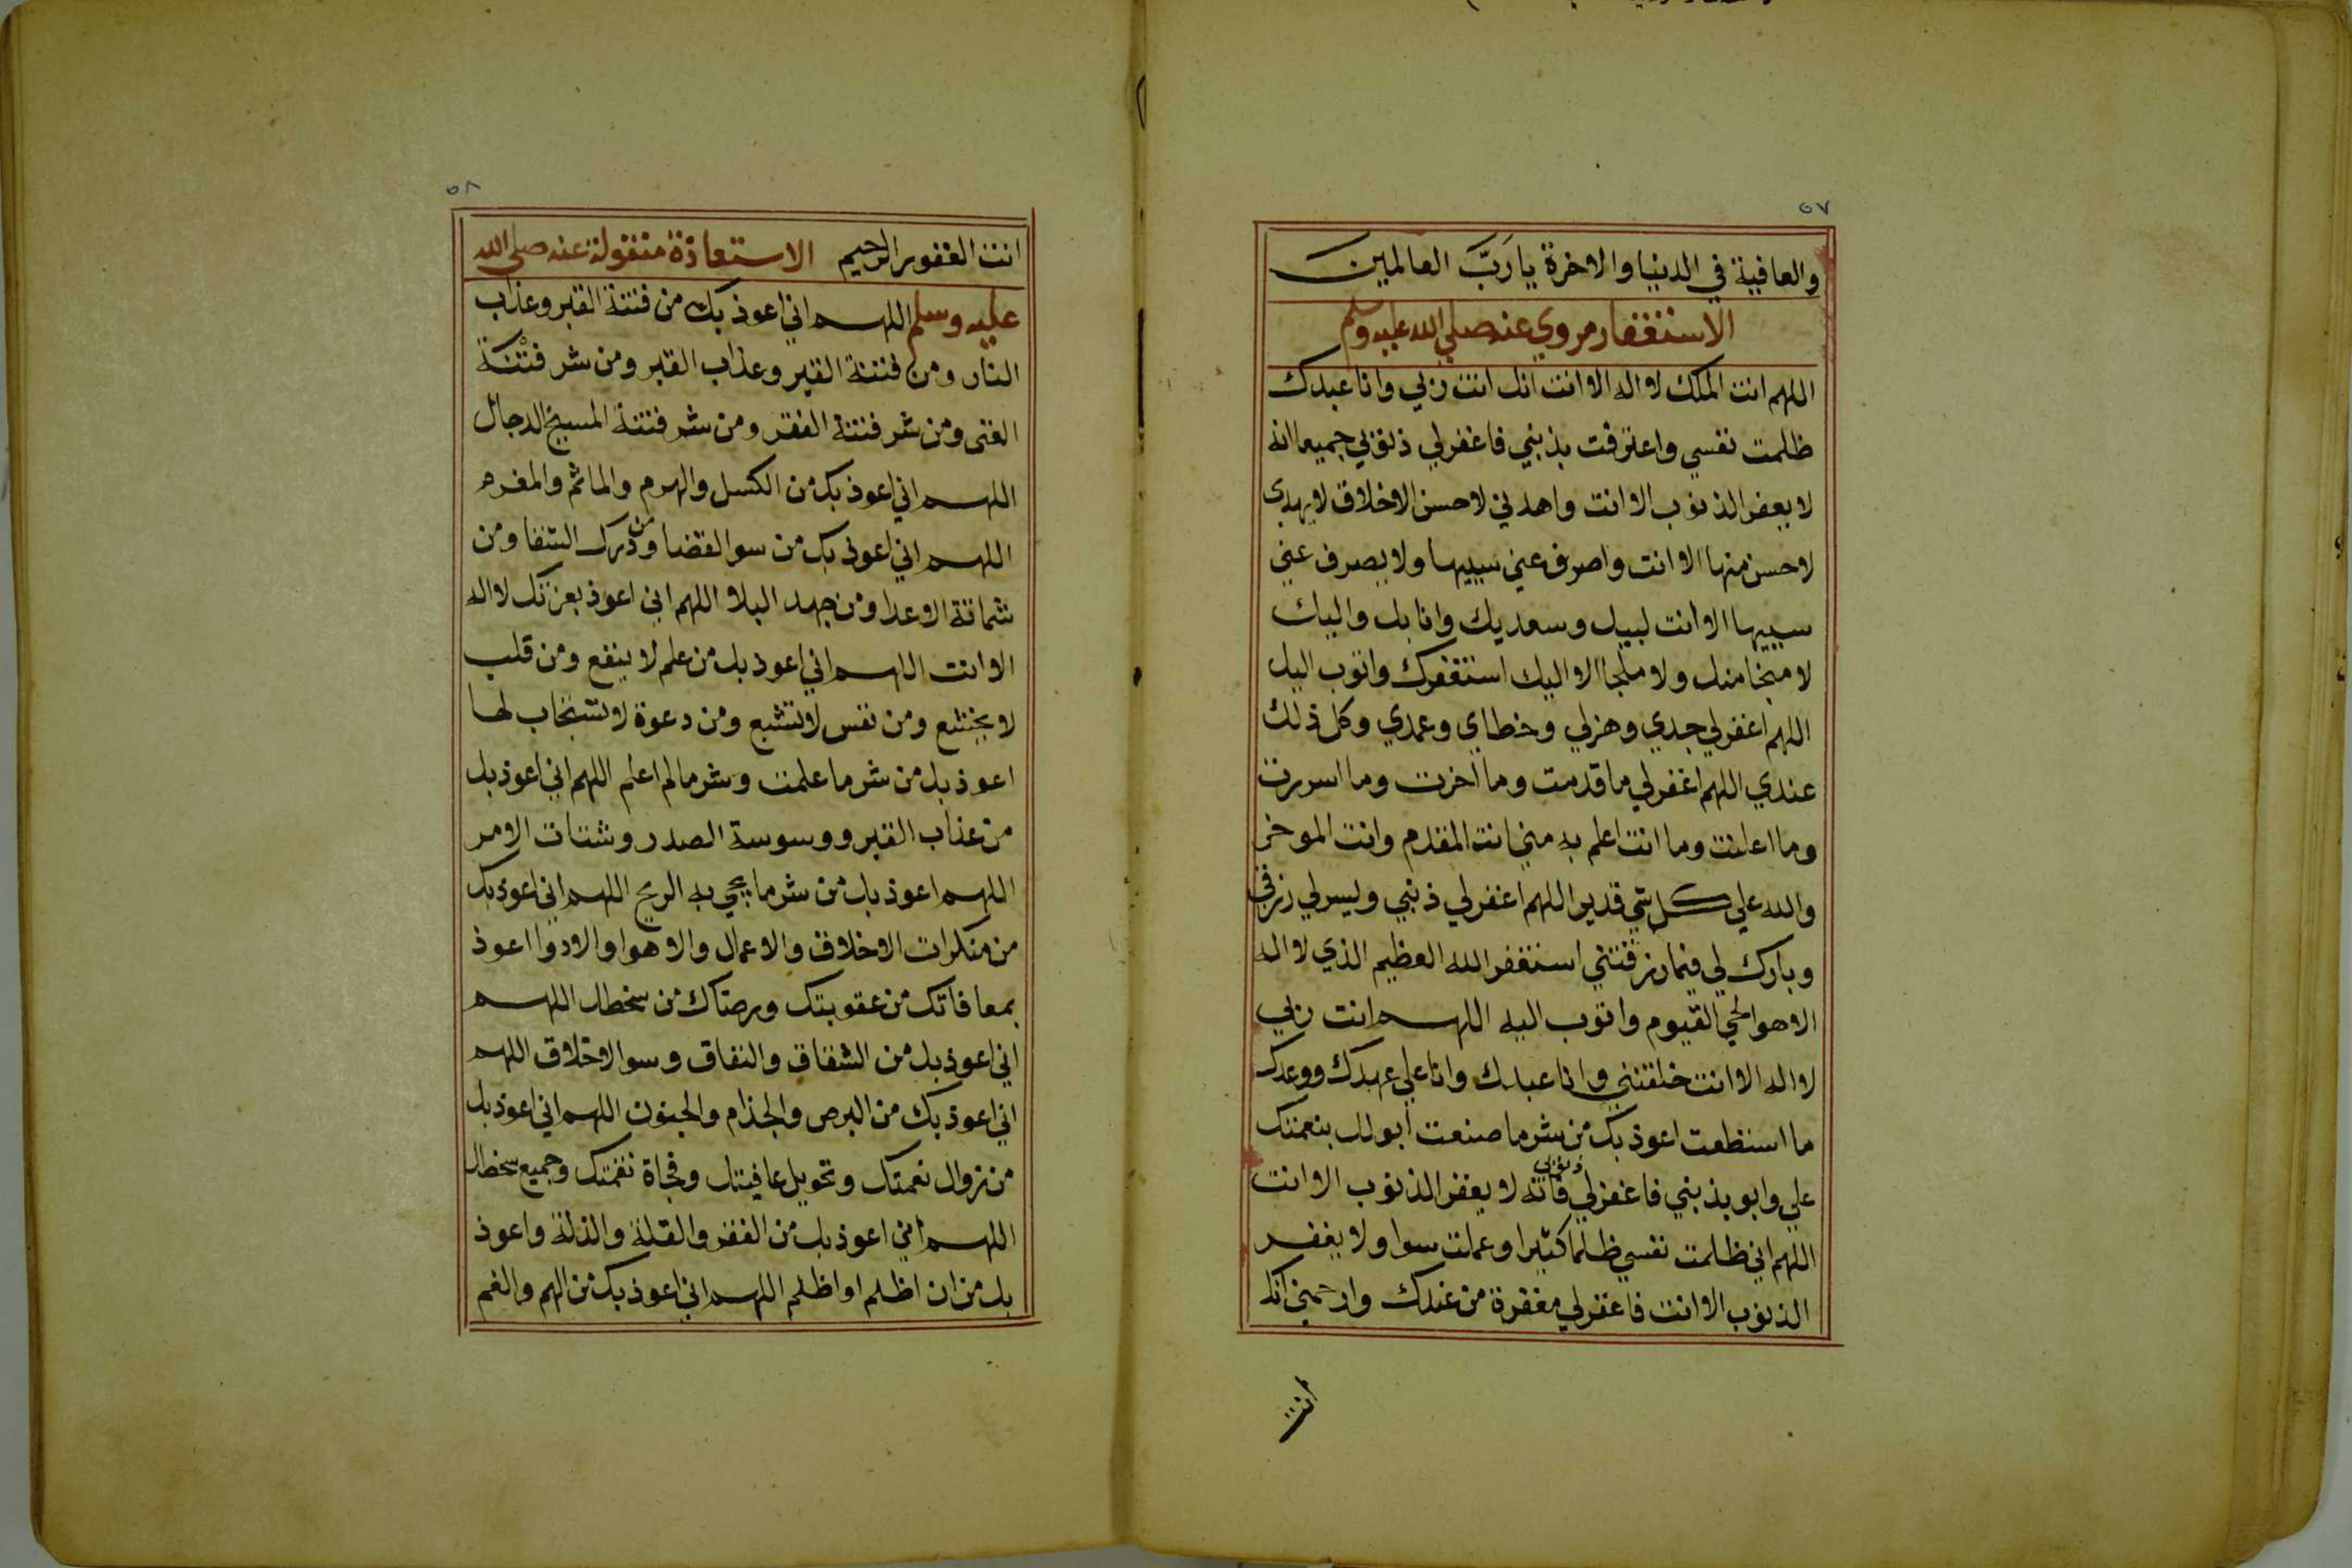 ٥٧
والعافية في الدنيا والاخرة يا رَبَّ العالمين
الاستغفار مروي عنه صلي الله عليه وسلم
اللهم انت الملك لا اله الا انت انك انت ربي وانا عبدك
ظلمت نفسي واعترفت بذنبي فاغفر لي ذنوبي جميعا انه
لا يغفر الذنوب الا انت واهدني لاحسن الاخلاق لا يهدي
لاحسن منها الا انت واصرف عني سييها ولا يصرف عني
سييها الا انت لبيك وسعديك وانا بك واليك
لا منجا منك ولا ملجا الا اليك استغفرك واتوب اليك
اللهم اغفر لي جدي وهزلي وخطاي وعمدي وكل ذلك
عندي اللهم اغفر لي ما قدمت وما اخرت وما اسررت
وما اعلنت وما انت اعلم به مني انت المقدم وانت الموخر
والله علي كل شي قدير اللهم اغفر لي ذنبي ويسر لي رزقي
وبارك لي فيما رزقتني استغفر الله العظيم الذي لا اله
الا هو الحي القيوم واتوب اليه اللهم انت ربي
لا اله الا انت خلقتني وانا عبدك وانا علي عهدك ووعدك
ما استطعت اعوذ بك من شر ما صنعت أبو لك بنعمتك
علي وابو بذنبي فاغفر لي ذنوبي فانه لا يغفر الذنوب الا انت
اللهم اني ظلمت نفسي ظلما كثيرا وعملت سوا ولا يغفر
الذنوب الا انت فاغفر لي مغفرة من عندك وارحمني انك
أنت
٥٨
انت الغفور الرحيم الاستعاذة منقولة عنه صلي الله
عليه وسلم اللهم اني اعوذ بك من فتنة القبر وعذاب
النار ومن فتنة القبر وعذاب القبر ومن شر فتْنَة
الغنى ومن شر فتنة الفقر ومن شر فتنة المسيح الدجال
اللهم اني اعوذ بك من الكسل والهرم والماثم والمغرم
اللهم اني اعوذ بك من سو القضا ومن درك الشقا ومن
شماتة الاعدا ومن جهد البلا اللهم اني اعوذ بعزتك لا اله
الا انت اللهم اني اعوذ بك من علم لا ينفع ومن قلب
لا يخشع ومن نفس لا تشبع ومن دعوة لا تستجاب لها
اعوذ بك من شر ما علمت وشر ما لم اعلم اللهم اني اعوذ بك
من عذاب القبر ووسوسة الصدر وشتات الامر
اللهم اعوذ بك من شر ما يجي به الريح اللهم اني اعوذ بك
من منكرات الاخلاق والاعمال والاهوا والادوا اعوذ
بمعافاتك من عقوبتك وبرضاك من سخطك اللهم
اني اعوذ بك من الشقاق والنفاق وسو الاخلاق اللهم
اني اعوذ بك من البرص والجذام والجنون اللهم اني اعوذ بك
من زوال نعمتك وتحويل عافيتك وفجاة نقمتك وجميع سخطك
اللهم اني اعوذ بك من الفقر والقلة والذلة واعوذ
بك من ان اظلم او اظلم اللهم اني اعوذ بك من الهم والغم